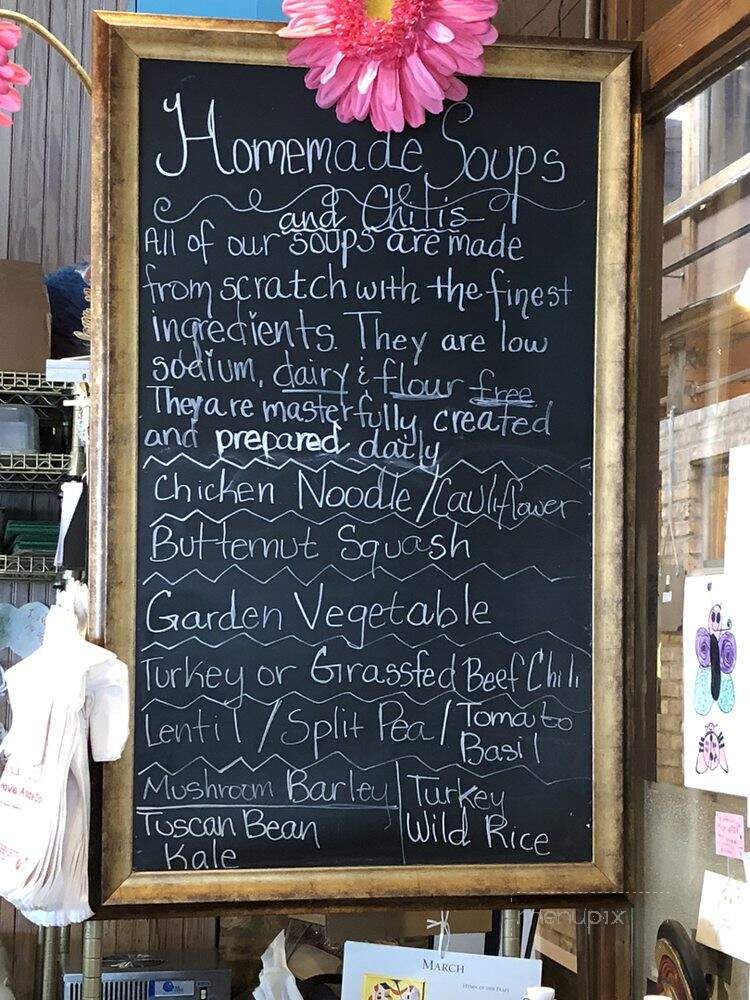 Homemade Soups
and Chilis
All of our soups are made
from scratch with the finest
ingredients. They are low
sodium, dairy & flour free.
They are masterfully created
and prepared daily
Chicken Noodle/Cauliflower
Butternut Squash
Garden Vegetable
Turkey or Grassfed Beef Chili
Lentil / Split Pea / Tomato Basil
Mushroom Barley
Tuscan Bean
Kale
Turkey
Wild Rice
menupix
MARCH